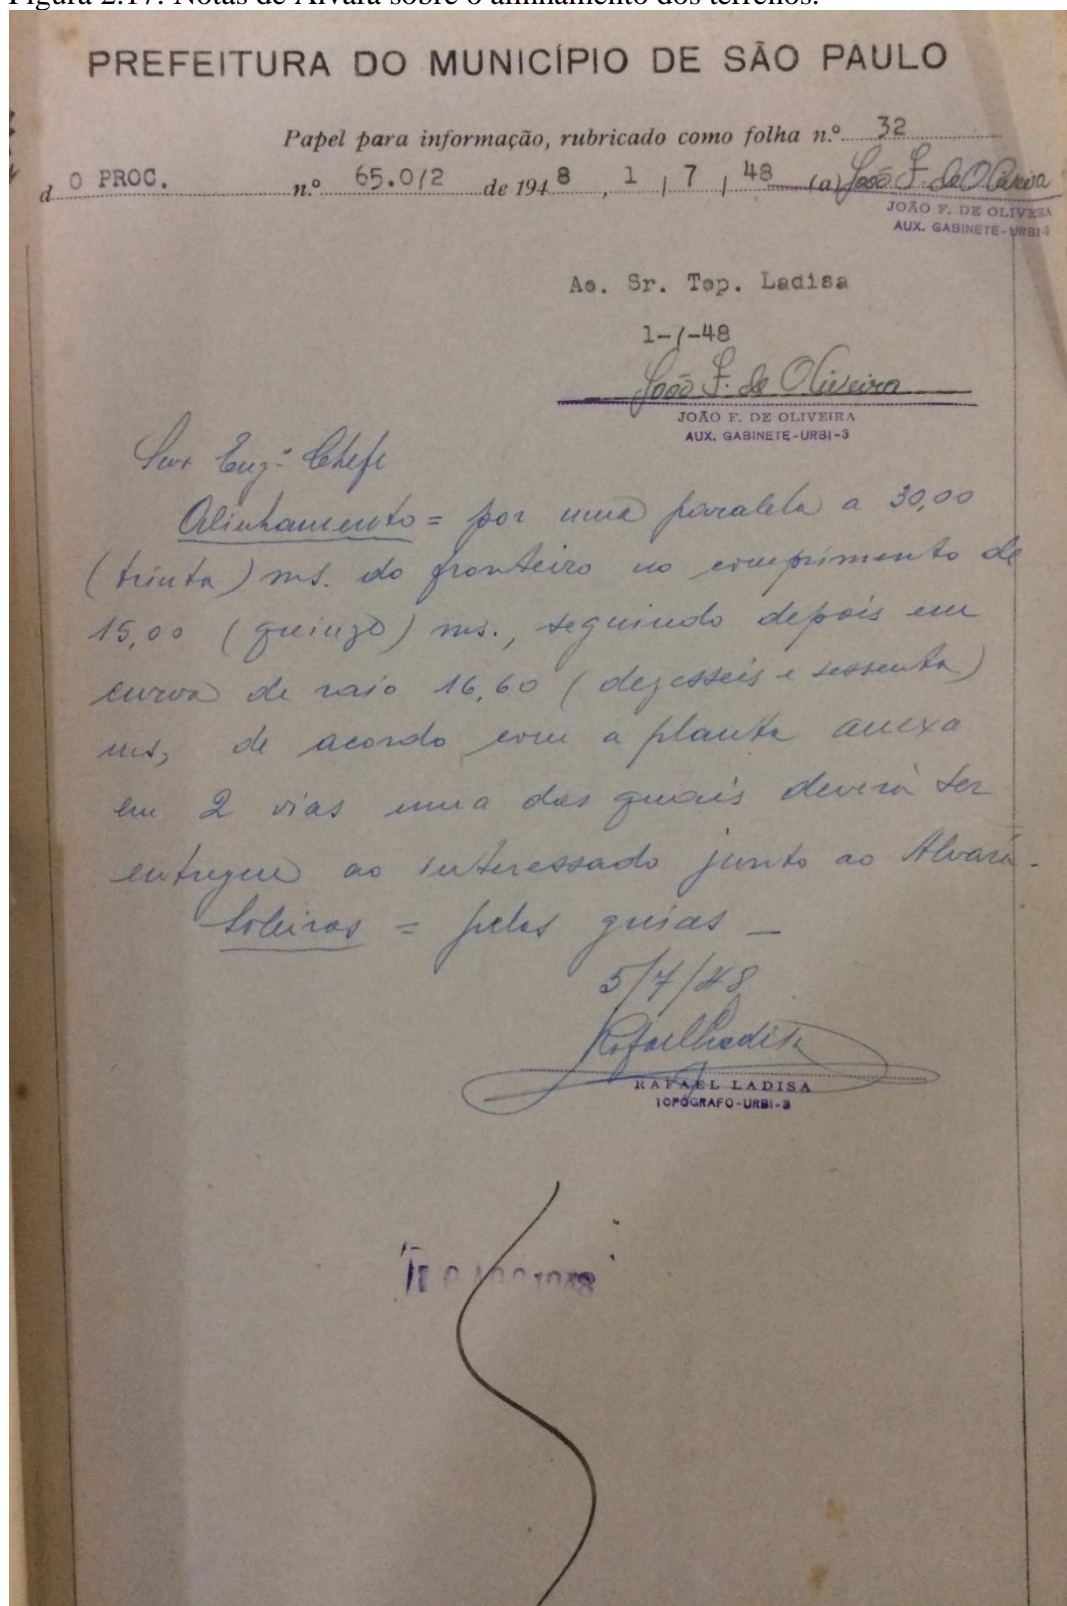 Figura 2.17: Notas de Alvará sobre o alinhamento dos terrenos.
PREFEITURA DO MUNICÍPIO DE SÃO PAULO
Papel para informação, rubricado como folha n.º 32
d O PROC. n.º 65.0/2 de 1948, 1 / 7 / 48 (a) João F. de Oliveira
JOÃO F. DE OLIVEIRA
AUX. GABINETE-URBI-3
Ao. Sr. Top. Ladisa
1-/-48
João F. de Oliveira
JOÃO F. DE OLIVEIRA
AUX. GABINETE-URBI-3
Snr Engº Chefe
Alinhamento = por uma paralela a 30,00
(trinta) ms. do fronteiro no comprimento de
15,00 (quinze) ms., seguindo depois em
curva de raio 16,60 (dezesseis e sessenta)
ms, de acordo com a planta anexa
em 2 vias uma das quais deverá ser
entregue ao interessado junto ao Alvará.
Soleiras = pelas guias _
5/7/48
Rafael Ladisa
RAFAEL LADISA
TOPÓGRAFO-URBI-3